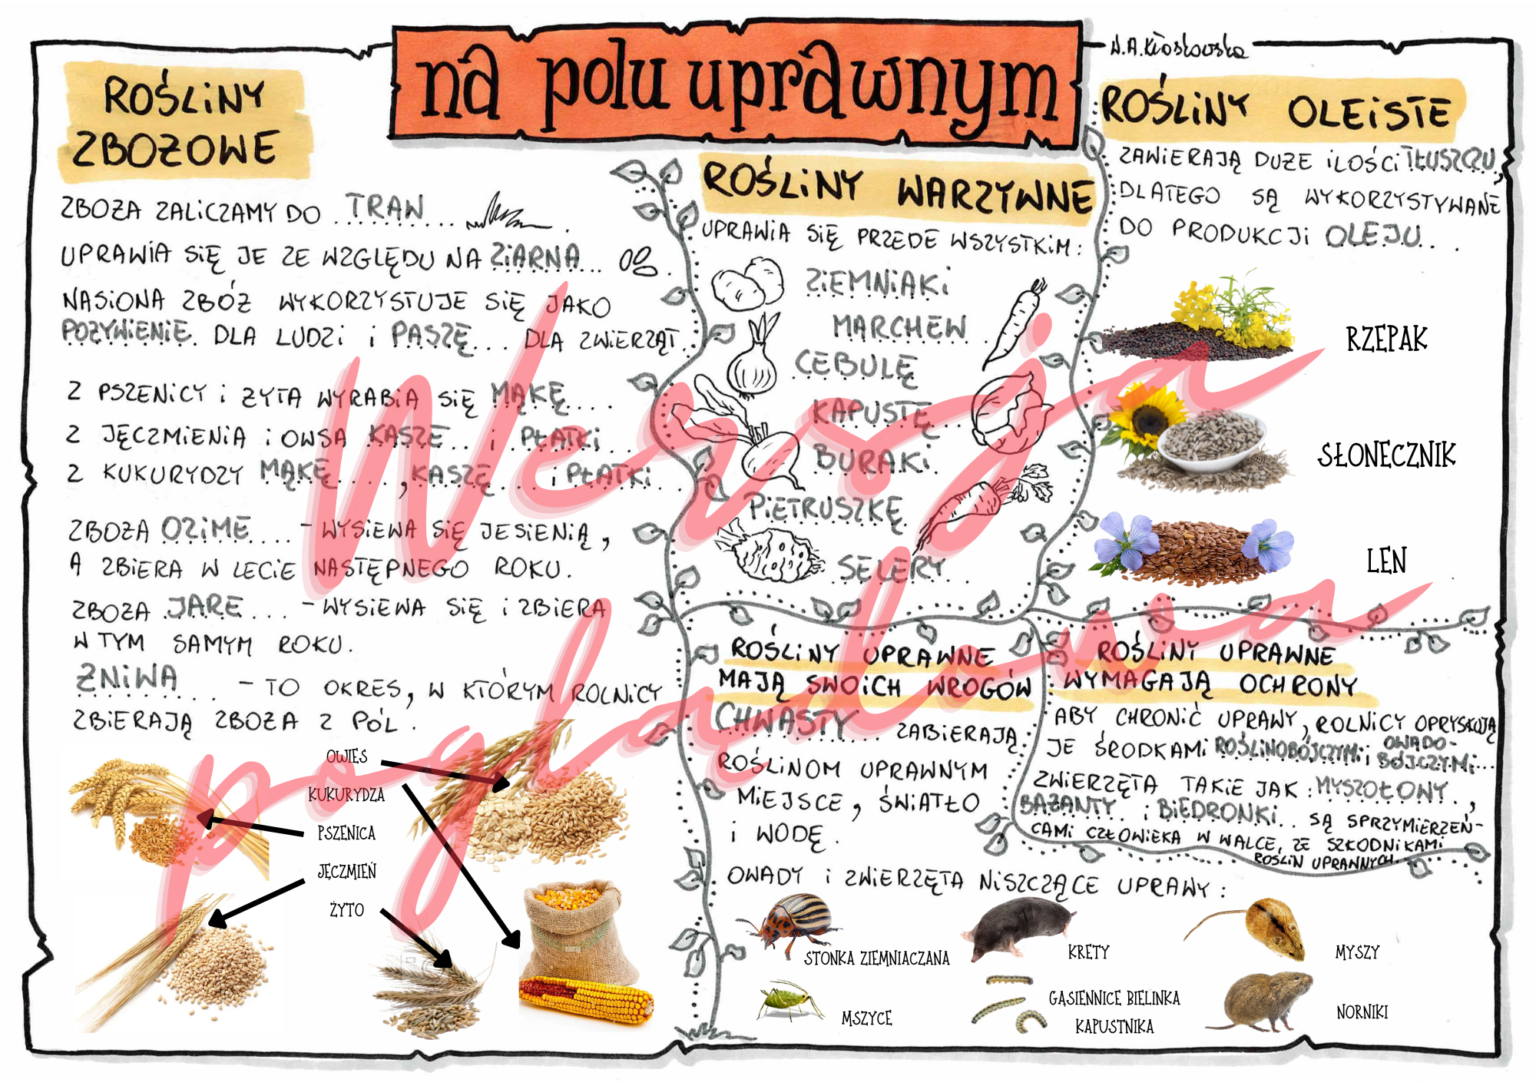 na polu uprawnym
N.A.Kłosowska
ROŚLINY
ZBOŻOWE
ZBOŻA ZALICZAMY DO TRAW....
UPRAWIA SIĘ JE ZE WZGLĘDU NA ZIARNA...
NASIONA ZBÓŻ WYKORZYSTUJE SIĘ JAKO
POŻYWIENIE. DLA LUDZI I PASZĘ... DLA ZWIERZĄT.
Z PSZENICY I ŻYTA WYRABIA SIĘ MĄKĘ....
Z JĘCZMIENIA I OWSA KASZĘ... I PŁATKI
Z KUKURYDZY MĄKĘ....,KASZĘ....I PŁATKI.
ZBOŻA OZIME.... - WYSIEWA SIĘ JESIENIĄ,
A ZBIERA W LECIE NASTĘPNEGO ROKU.
ZBOŻA JARE.... - WYSIEWA SIĘ I ZBIERA
W TYM SAMYM ROKU.
ŻNIWA.... - TO OKRES, W KTÓRYM ROLNICY
ZBIERAJĄ ZBOŻA Z PÓL.
OWIES
KUKURYDZA
PSZENICA
JĘCZMIEŃ
ŻYTO
ROŚLINY WARZYWNE
UPRAWIA SIĘ PRZEDE WSZYSTKIM:
ZIEMNIAKI
MARCHEW
CEBULĘ
KAPUSTĘ
BURAKI.
PIETRUSZKĘ
SELERY.
ROŚLINY OLEISTE
ZAWIERAJĄ DUŻE ILOŚCI TŁUSZCZU,
DLATEGO SĄ WYKORZYSTYWANE
DO PRODUKCJI OLEJU...
RZEPAK
SŁONECZNIK
LEN
ROŚLINY UPRAWNE
MAJĄ SWOICH WROGÓW
CHWASTY.... ZABIERAJĄ
ROŚLINOM UPRAWNYM
MIEJSCE, ŚWIATŁO
I WODĘ.
ROŚLINY UPRAWNE
WYMAGAJĄ OCHRONY
ABY CHRONIĆ UPRAWY, ROLNICY OPRYSKUJĄ
JE ŚRODKAMI ROŚLINOBÓJCZYMI I OWADO-
BÓJCZYMI...
ZWIERZĘTA TAKIE JAK: MYSZOŁOWY.,
BAŻANTY. I BIEDRONKI.. SĄ SPRZYMIERZEŃ-
CAMI CZŁOWIEKA W WALCE, ZE SZKODNIKAMI
ROŚLIN UPRAWNYCH.
OWADY I ZWIERZĘTA NISZCZĄCE UPRAWY:
STONKA ZIEMNIACZANA
KRETY
MYSZY
MSZYCE
GĄSIENNICE BIELINKA
KAPUSTNIKA
NORNIKI
Wersja
poglądowa